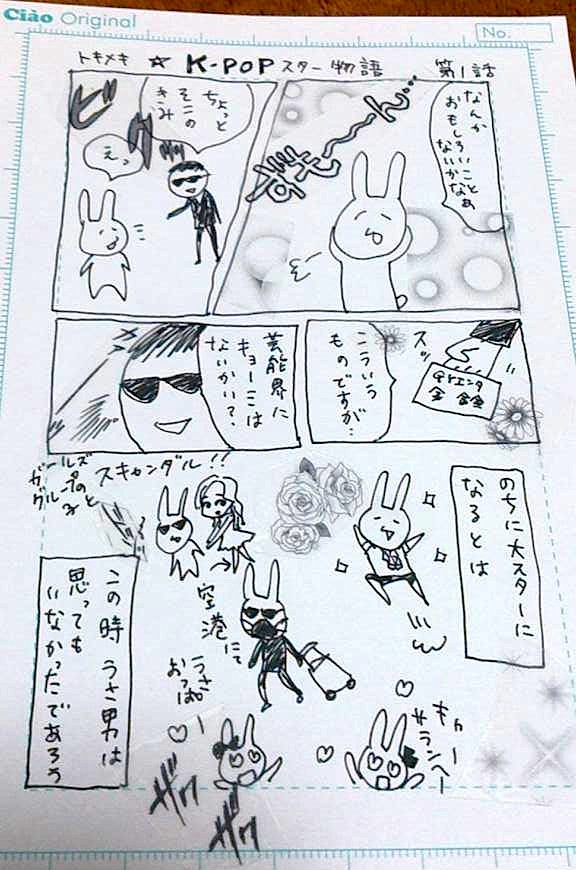 Ciào Original
No.
トキメキ ☆ K-POP スター物語 第1話
なんか
おもしろいこと
ないかなぁ
ず〜〜ん…
ちょっと
そこの
きみ
ビ
えっ
スッ
こういう
ものですが…
芸能界に
キョーミは
ないかい?
のちに大スターに
なるとは
スキャンダル!!
ガールズ
グループの
子と
空港にて
うさぎ
おっぱー
キャー
サランヘー
ザワ
ザワ
この時 うさ男は
思っても
いなかったであろう